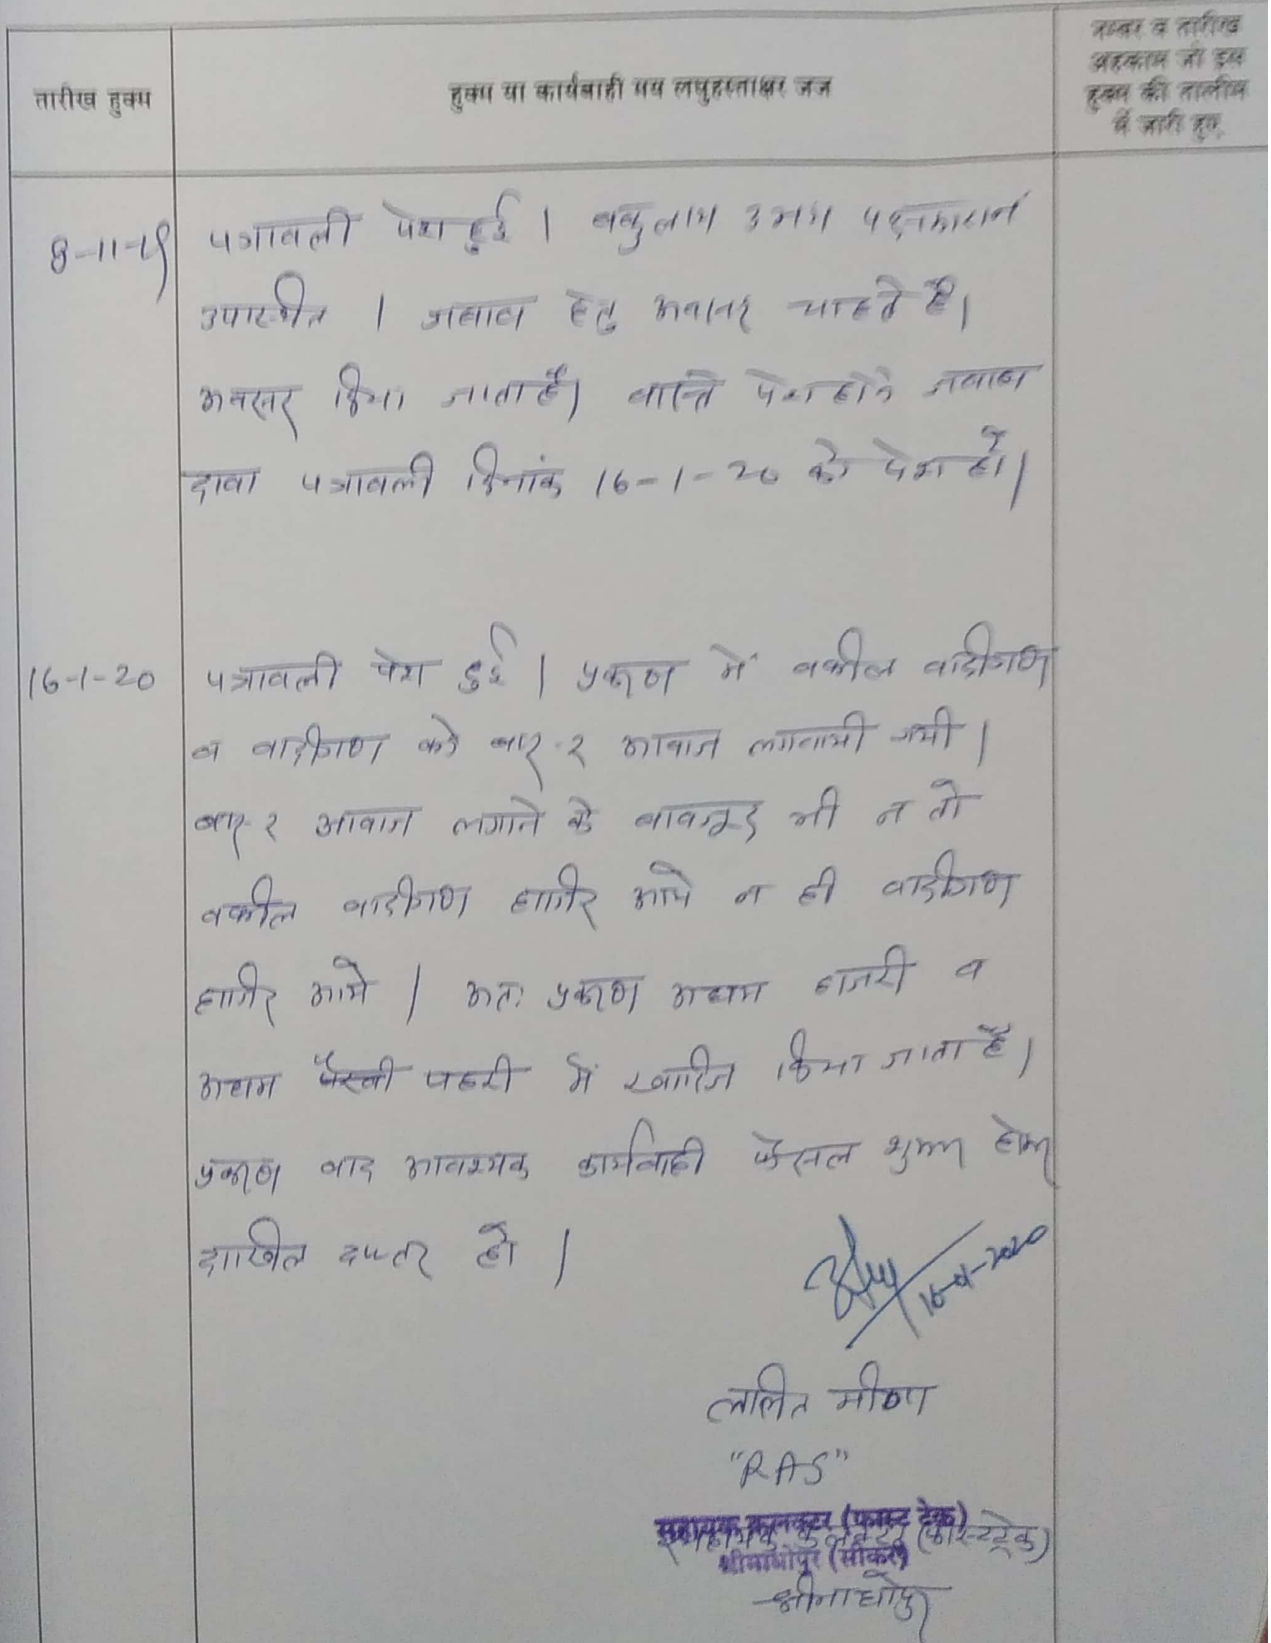 तारीख हुक्म
हुक्म या कार्यवाही मय लघुहस्ताक्षर जज
नम्बर व तारीख
अहकाम जो इस
हुक्म की तामील
में जारी हुए
8-11-19
पत्रावली पेश हुई । वकुलाय उभय पक्षकारान
उपास्थीत । जवाब हेतु अवसर चाहते है।
अवसर दिया जाता है। वास्ते पेश होने जवाब
दावा पत्रावली दिनांक 16-1-20 को पेश हो।
16-1-20
पत्रावली पेश हुई । प्रकरण में वकील वादीगण
व वादीगण को बार-२ आवाज लगवायी गयी ।
बार-२ आवाज लगाने के बावजूद भी न तो
वकील वादीगण हाजिर आये न ही वादीगण
हाजिर आये । अतः प्रकरण अदम हाजरी व
अदम पैरवी में खारिज किया जाता है।
प्रकरण बाद आवश्यक कार्यवाही फैसल शुमार होकर
दाखिल दफ्तर हो ।
16-01-2020
ललित मीणा
"RAS"
सहायक कलक्टर (फास्ट ट्रेक)
श्रीमाधोपुर (सीकर)
(फास्टट्रेक)
श्रीमाधोपुर